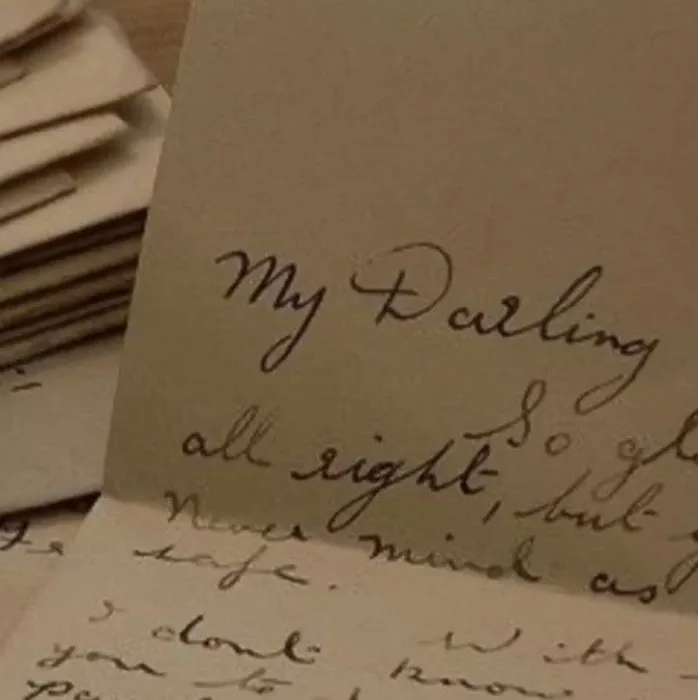 My Darling
So
all right, but
Never mind as
safe.
I dont With
you to know